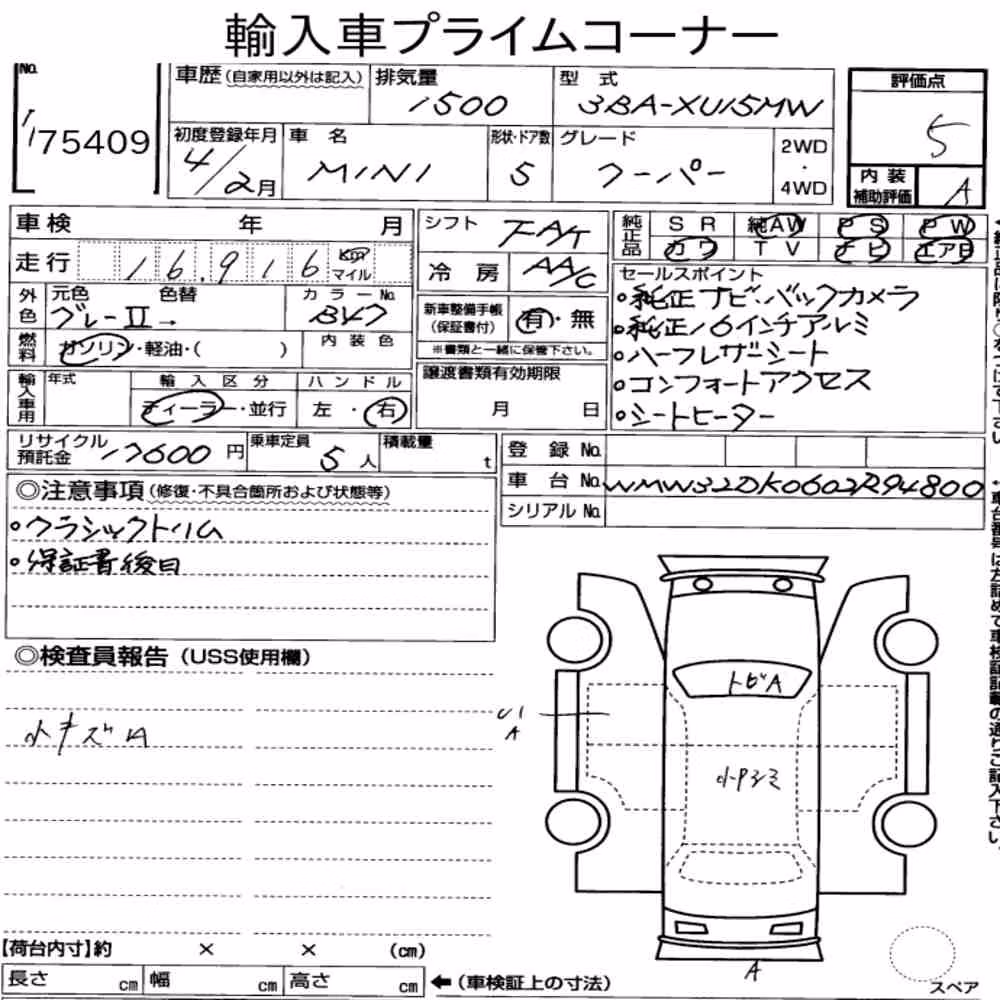 輸入車プライムコーナー
No.
75409
車歴(自家用以外は記入)
排気量
1500
型 式
3BA-XU15MW
評価点
5
初度登録年月
4/2月
車 名
MINI
形状・ドア数
5
グレード
クーパー
2WD
・
4WD
内 装
補助評価
A
車検 年 月
走行 16.916 km マイル
シフト FAT
冷 房 AA/C
純正品
S R 純AW P S P W
カワ T V ナビ エアB
外色
元色 色替
グレーII→
カラーNo
BY7
燃料
ガソリン・軽油・( )
内 装 色
新車整備手帳
(保証書付)
有・無
※書類と一緒に保管下さい。
セールスポイント
○純正ナビ・バックカメラ
○純正16インチアルミ
○ハーフレザーシート
○コンフォートアクセス
○シートヒーター
輸入車用
年式
輸 入 区 分
ディーラー・並行
ハ ン ド ル
左・右
譲渡書類有効期限
月 日
リサイクル
預託金
17600円
乗車定員
5人
積載量
t
登 録 No.
車 台 No. WMW32DK0602R94800
シリアル No.
◎注意事項(修復・不具合箇所および状態等)
○クラシックトリム
○保証書後日
◎検査員報告(USS使用欄)
小キズA
トビA
U1
A
小アタミ
A
【荷台内寸】約 × × (cm)
長さ cm 幅 cm 高さ cm
←(車検証上の寸法)
スペア